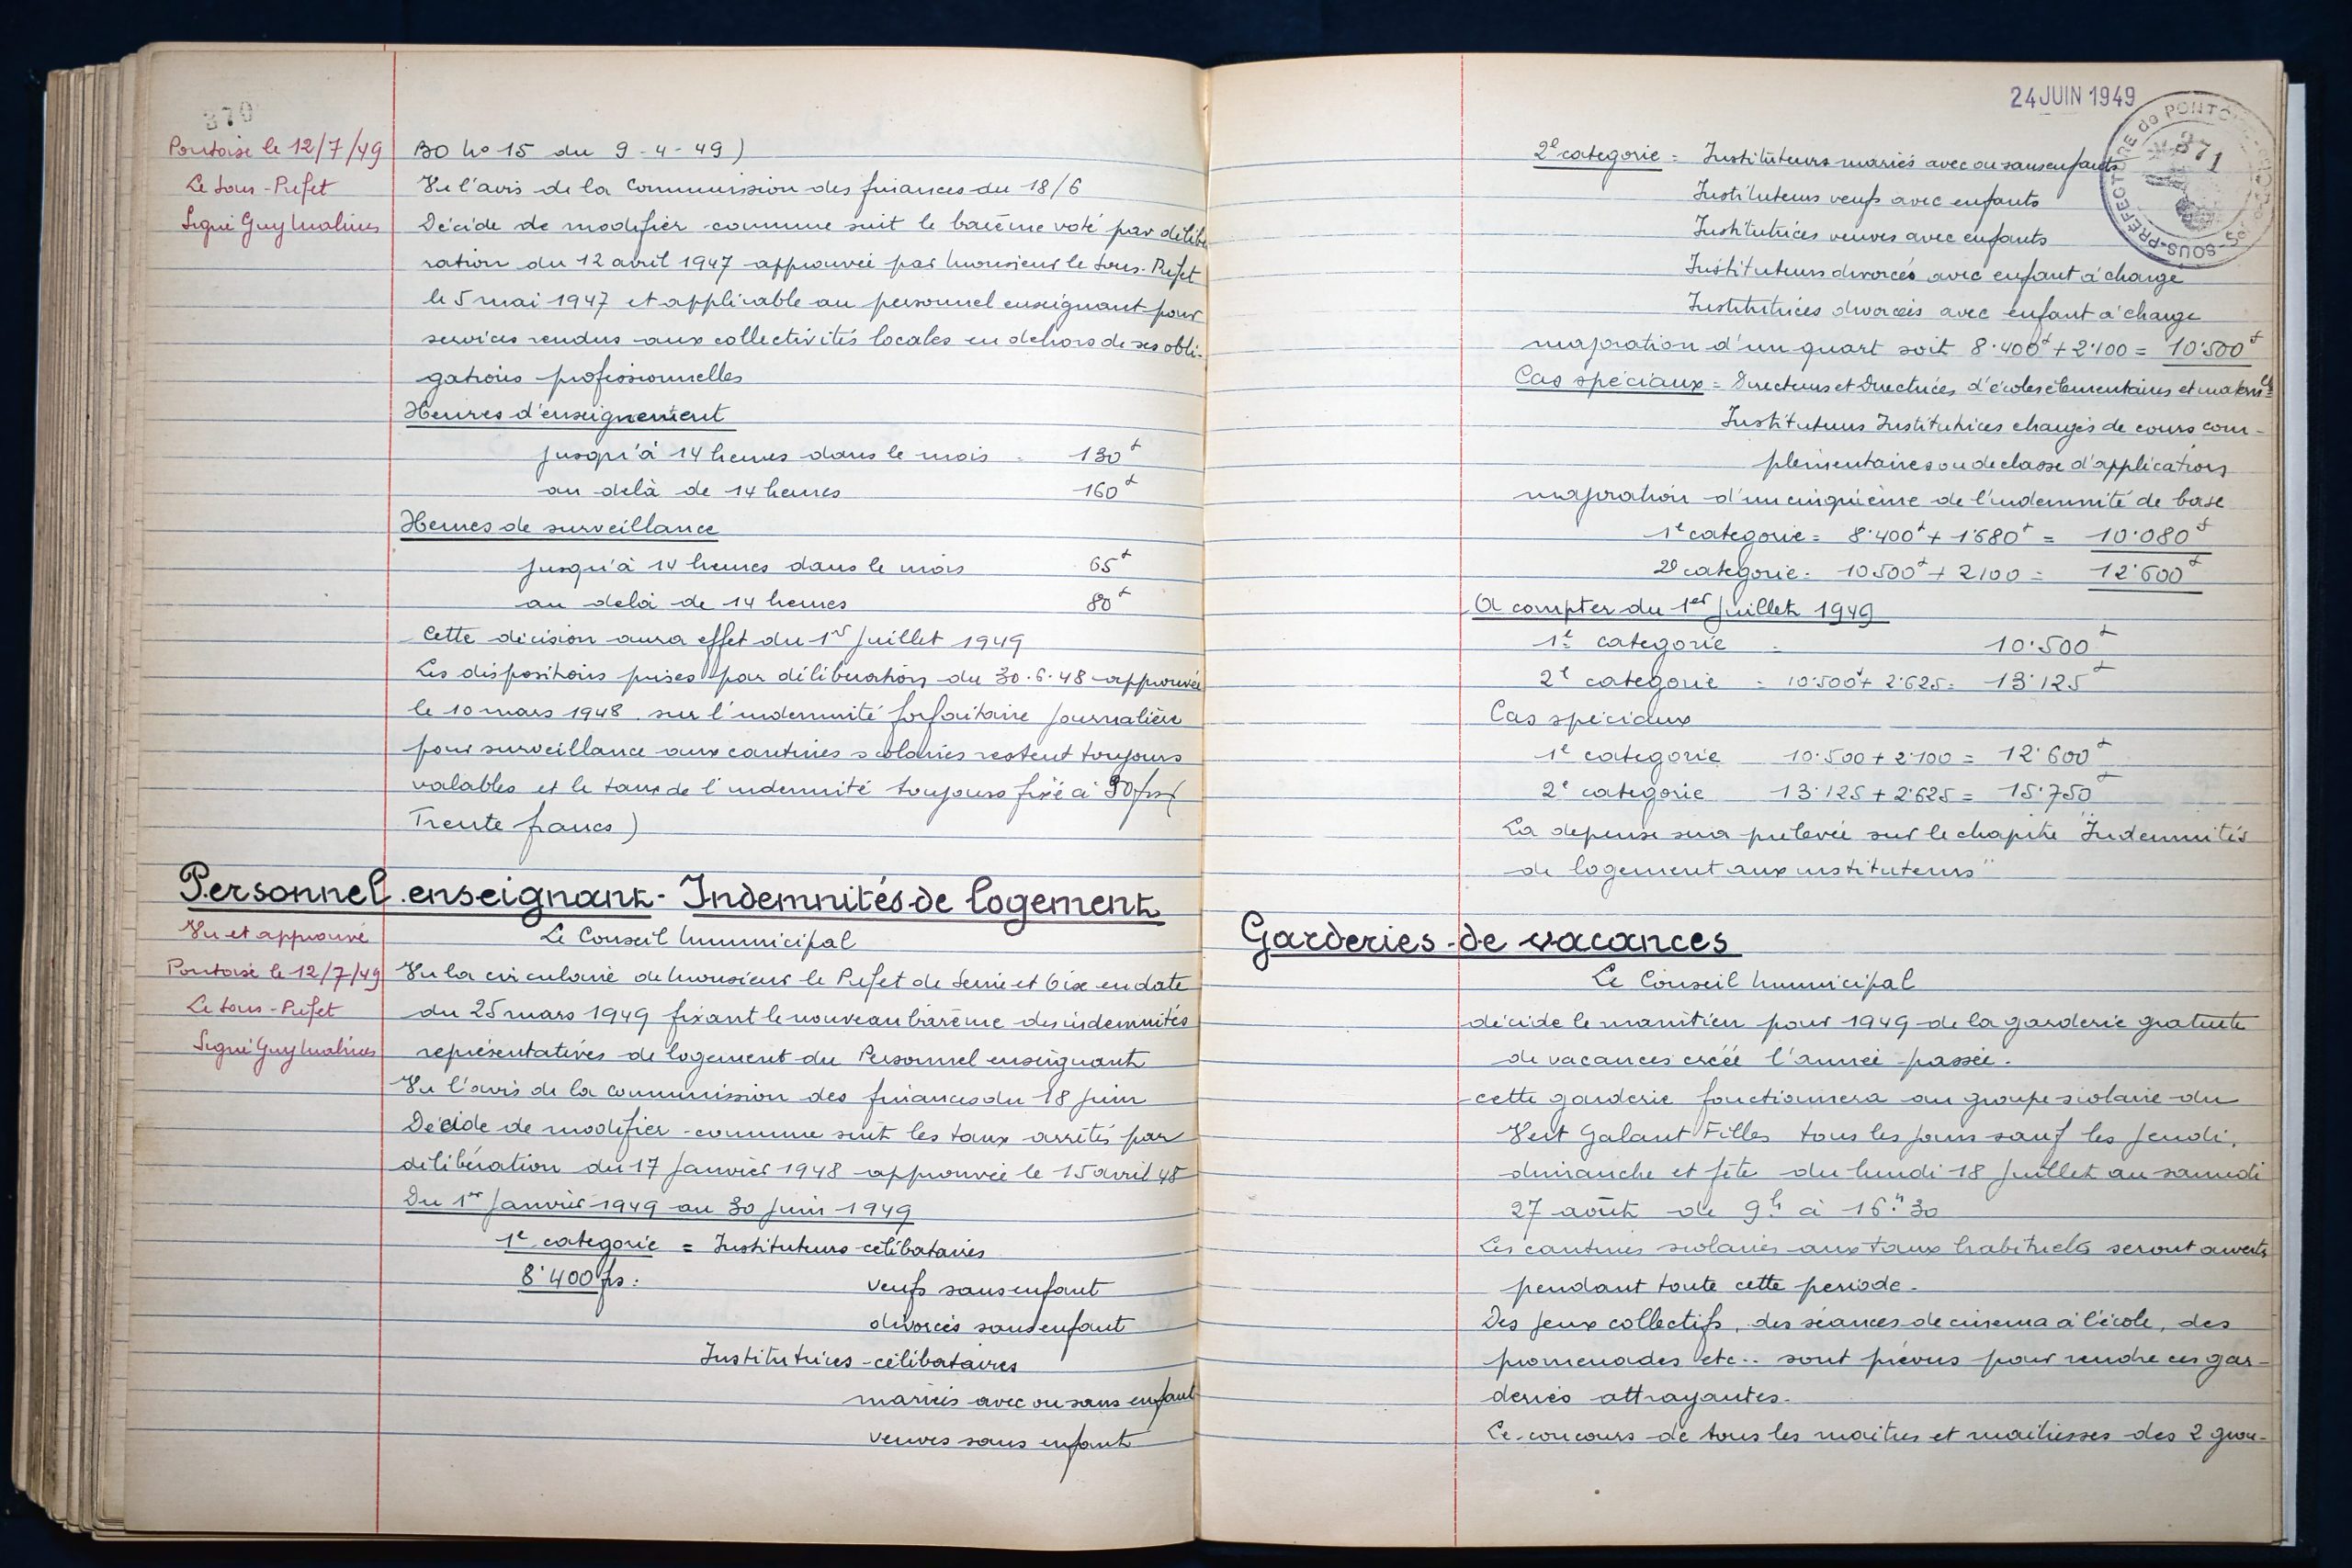 370
Pontoise le 12/7/49
Le Sous-Préfet
Signé Guy Malines
BO No 15 du 9-4-49)
Vu l'avis de la Commission des finances du 18/6
Décide de modifier comme suit le barème voté par délibé
ration du 12 avril 1947 approuvée par Monsieur le Sous-Préfet
le 5 mai 1947 et applicable au personnel enseignant pour
services rendus aux collectivités locales en dehors de ses obli-
gations professionnelles
Heures d'enseignement
jusqu'à 14 heures dans le mois - 130f
au delà de 14 heures 160f
Heures de surveillance
jusqu'à 14 heures dans le mois 65f
au delà de 14 heures 80f
Cette décision aura effet du 1er Juillet 1949
Les dispositions prises par délibération du 30.6.48 approuvée
le 10 mars 1948 sur l'indemnité forfaitaire journalière
pour surveillance aux cantines scolaires restent toujours
valables et le taux de l'indemnité toujours fixé à 30frs (
Trente francs)
Personnel enseignant - Indemnités de logement
Vu et approuvé
Pontoise le 12/7/49
Le Sous-Préfet
Signé Guy Malines
Le Conseil Municipal
Vu la circulaire de Monsieur le Préfet de Seine et Oise en date
du 25 mars 1949 fixant le nouveau barème des indemnités
représentatives de logement du Personnel enseignant
Vu l'avis de la commission des finances du 18 Juin
Décide de modifier comme suit les taux arrêtés par
délibération du 17 Janvier 1948 approuvée le 15 avril 48
Du 1er Janvier 1949 au 30 Juin 1949
1e categorie = Instituteurs célibataires
8.400 frs: veufs sans enfant
divorcés sans enfant
Institutrices célibataires
mariées avec ou sans enfant
veuves sans enfant
24 JUIN 1949
371
SOUS-PRÉFECTURE de PONTOISE
2e categorie = Instituteurs mariés avec ou sans enfants
Instituteurs veufs avec enfants
Institutrices veuves avec enfants
Instituteurs divorcés avec enfant à charge
Institutrices divorcées avec enfant à charge
majoration d'un quart soit 8.400f + 2.100 = 10.500f
Cas spéciaux = Directeurs et Directrices d'écoles élémentaires et maternelles
Instituteurs Institutrices chargés de cours com-
plémentaires ou de classe d'application
majoration d'un cinquième de l'indemnité de base
1e categorie = 8.400f + 1.680f = 10.080f
2e categorie = 10500f + 2100 = 12.600f
A compter du 1er Juillet 1949
1e categorie = 10.500f
2e categorie = 10.500f + 2.625 = 13.125f
Cas spéciaux
1e categorie 10.500 + 2.100 = 12.600f
2e categorie 13.125 + 2.625 = 15.750f
La depense sera prélevée sur le chapitre "Indemnités
de logement aux instituteurs"
Garderies de vacances
Le Conseil Municipal
décide le maintien pour 1949 de la garderie gratuite
de vacances créée l'année passée.
cette garderie fonctionnera au groupe scolaire du
Vert Galant Filles tous les jours sauf les Jeudi,
dimanche et fête du lundi 18 Juillet au samedi
27 août de 9h à 16h30
Les cantines scolaires aux taux habituels seront ouvertes
pendant toute cette periode.
Des Jeux collectifs, des séances de cinema à l'école, des
promenades etc.. sont prévus pour rendre ces gar-
deries attrayantes.
Le concours de tous les maîtres et maîtresses des 2 grou-